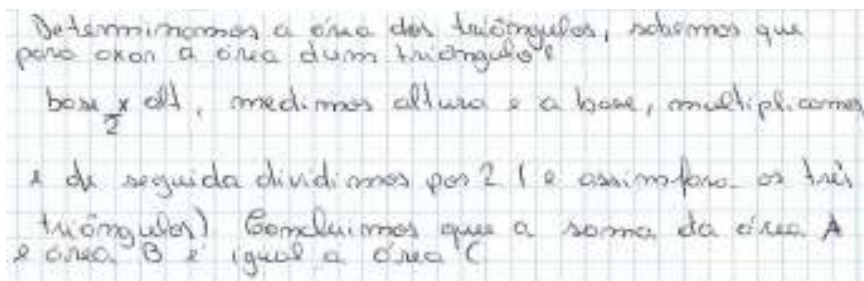 Determinamos a área dos triângulos, sabemos que
para axar a área dum triângulo é
base x alt, medimos altura e a base, multiplicamos
2
e de seguida dividimos por 2 (e assim para os três
triângulos) Concluimos que a soma da área A
e área B é igual a área C